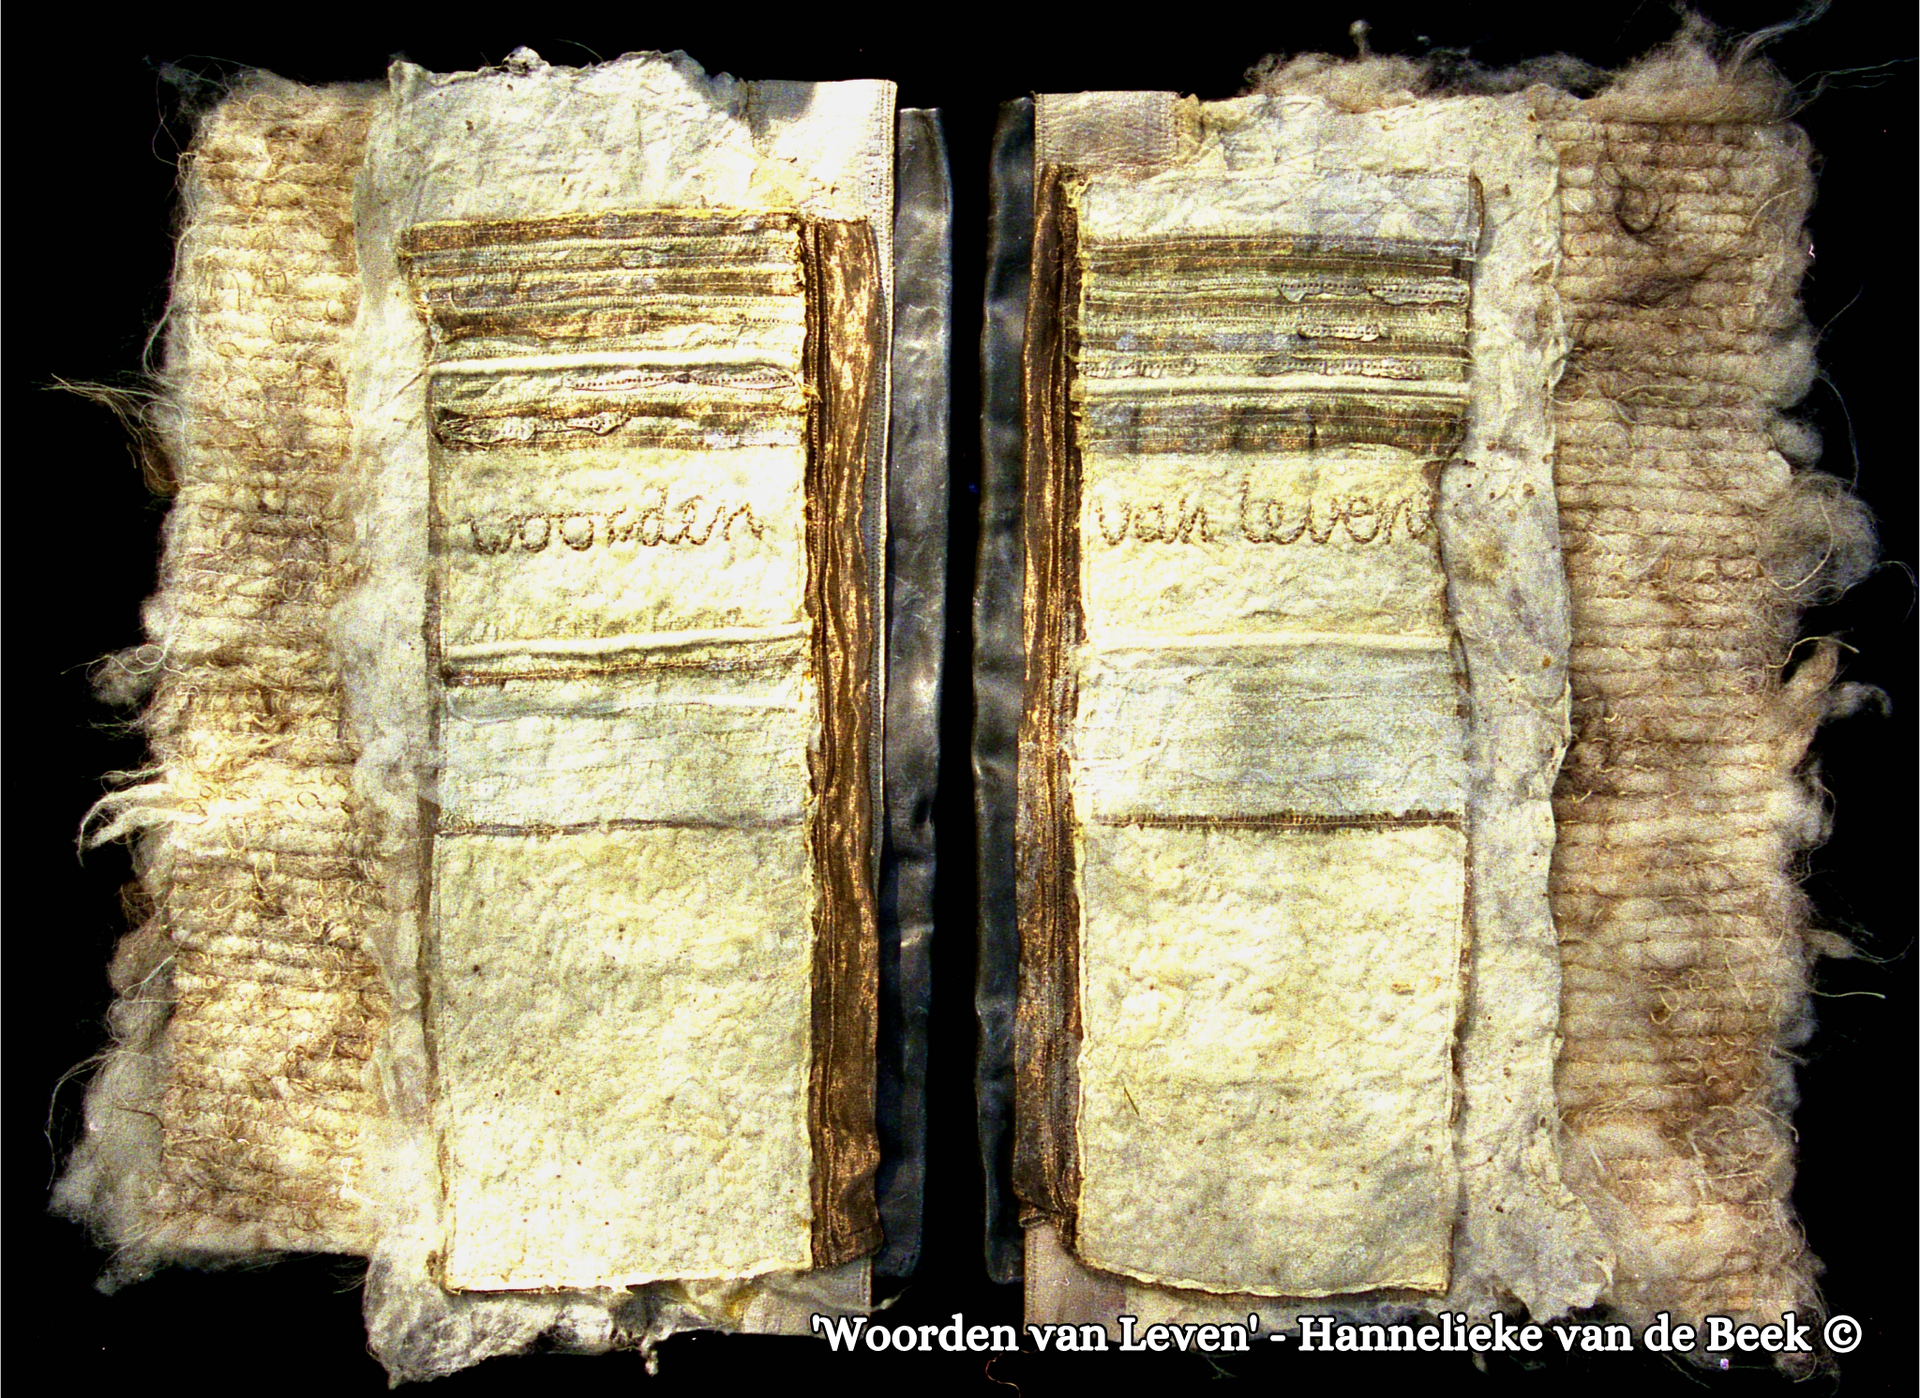 woorden
van leven
'Woorden van Leven' - Hannelieke van de Beek ©